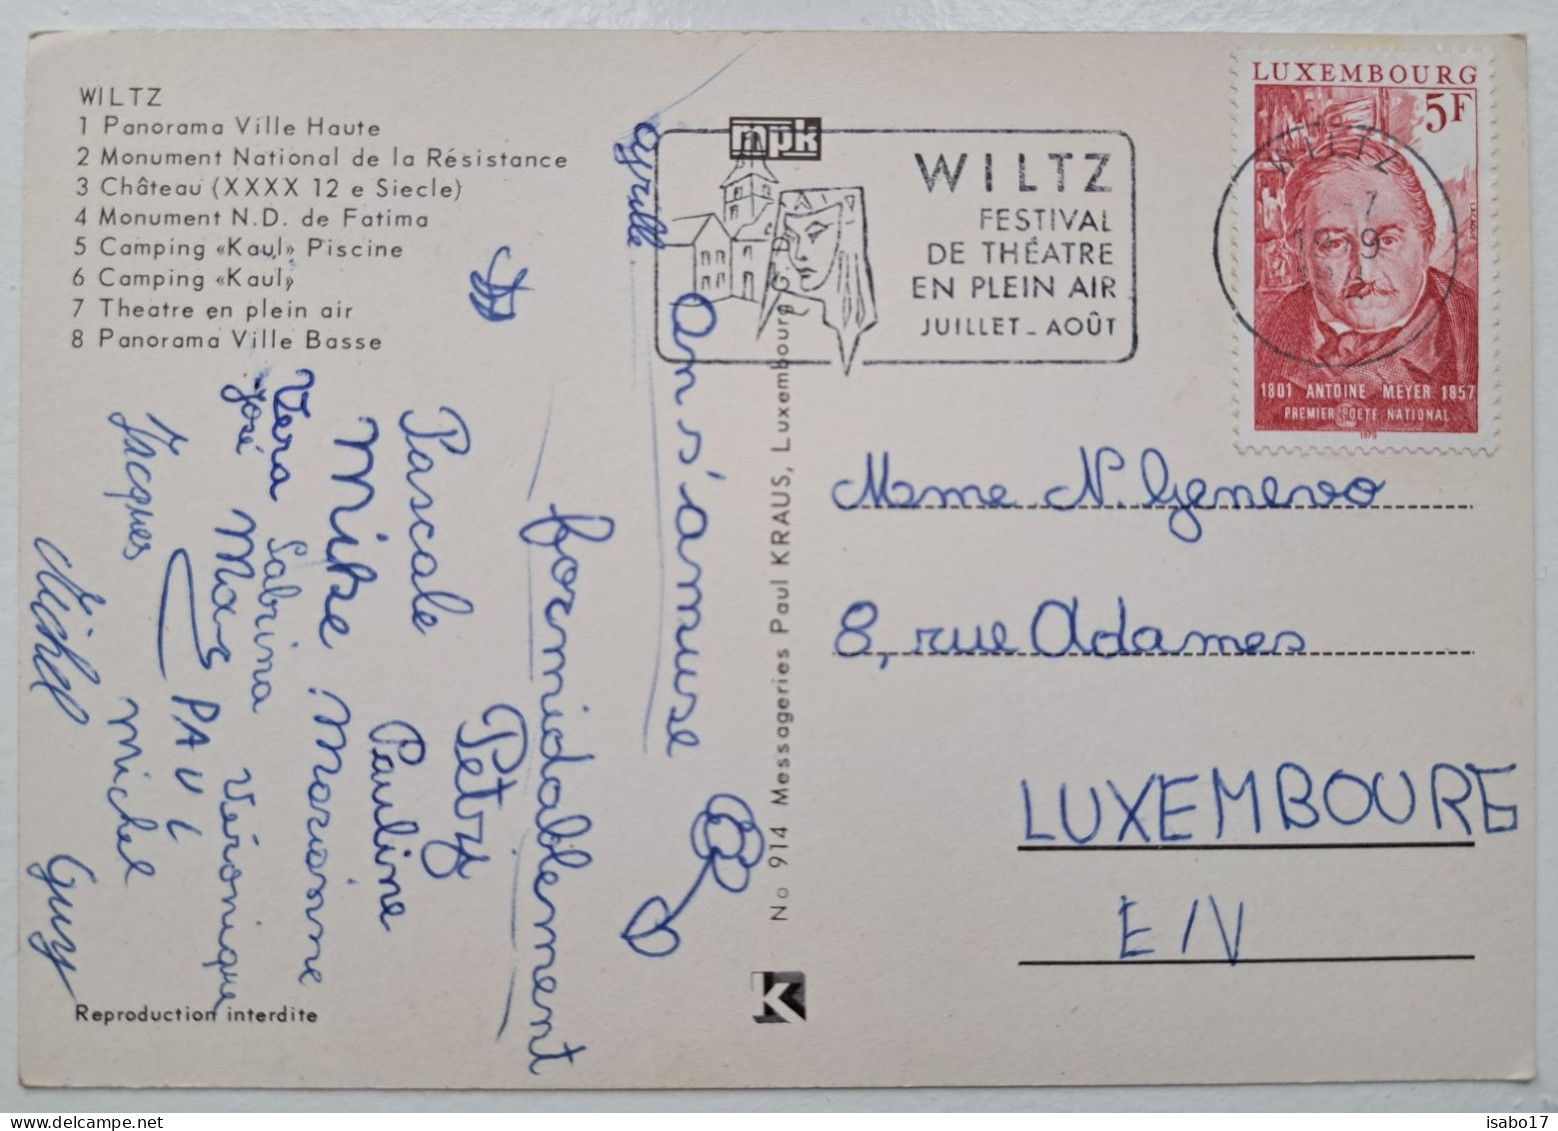 WILTZ
1 Panorama Ville Haute
2 Monument National de la Résistance
3 Château (XXXX 12 e Siecle)
4 Monument N.D. de Fatima
5 Camping «Kaul» Piscine
6 Camping «Kaul»
7 Theatre en plein air
8 Panorama Ville Basse
On s'amuse
formidablement
Cyrille
Pascale
Petry
Mike
Pauline
Vera
Marianne
José
Sabrina
Marc
Véronique
Jacques
PAUL
Michel
Michel
Guy
Reproduction interdite
No 914 Messageries Paul KRAUS, Luxembourg G.D.
mpk
K
WILTZ
FESTIVAL
DE THÉATRE
EN PLEIN AIR
JUILLET - AOÛT
WILTZ
LUXEMBOURG
5F
1801 ANTOINE MEYER 1857
PREMIER POETE NATIONAL
1978
Mme N. Genevo
8, rue Adames
LUXEMBOURG
E/V
isabo17